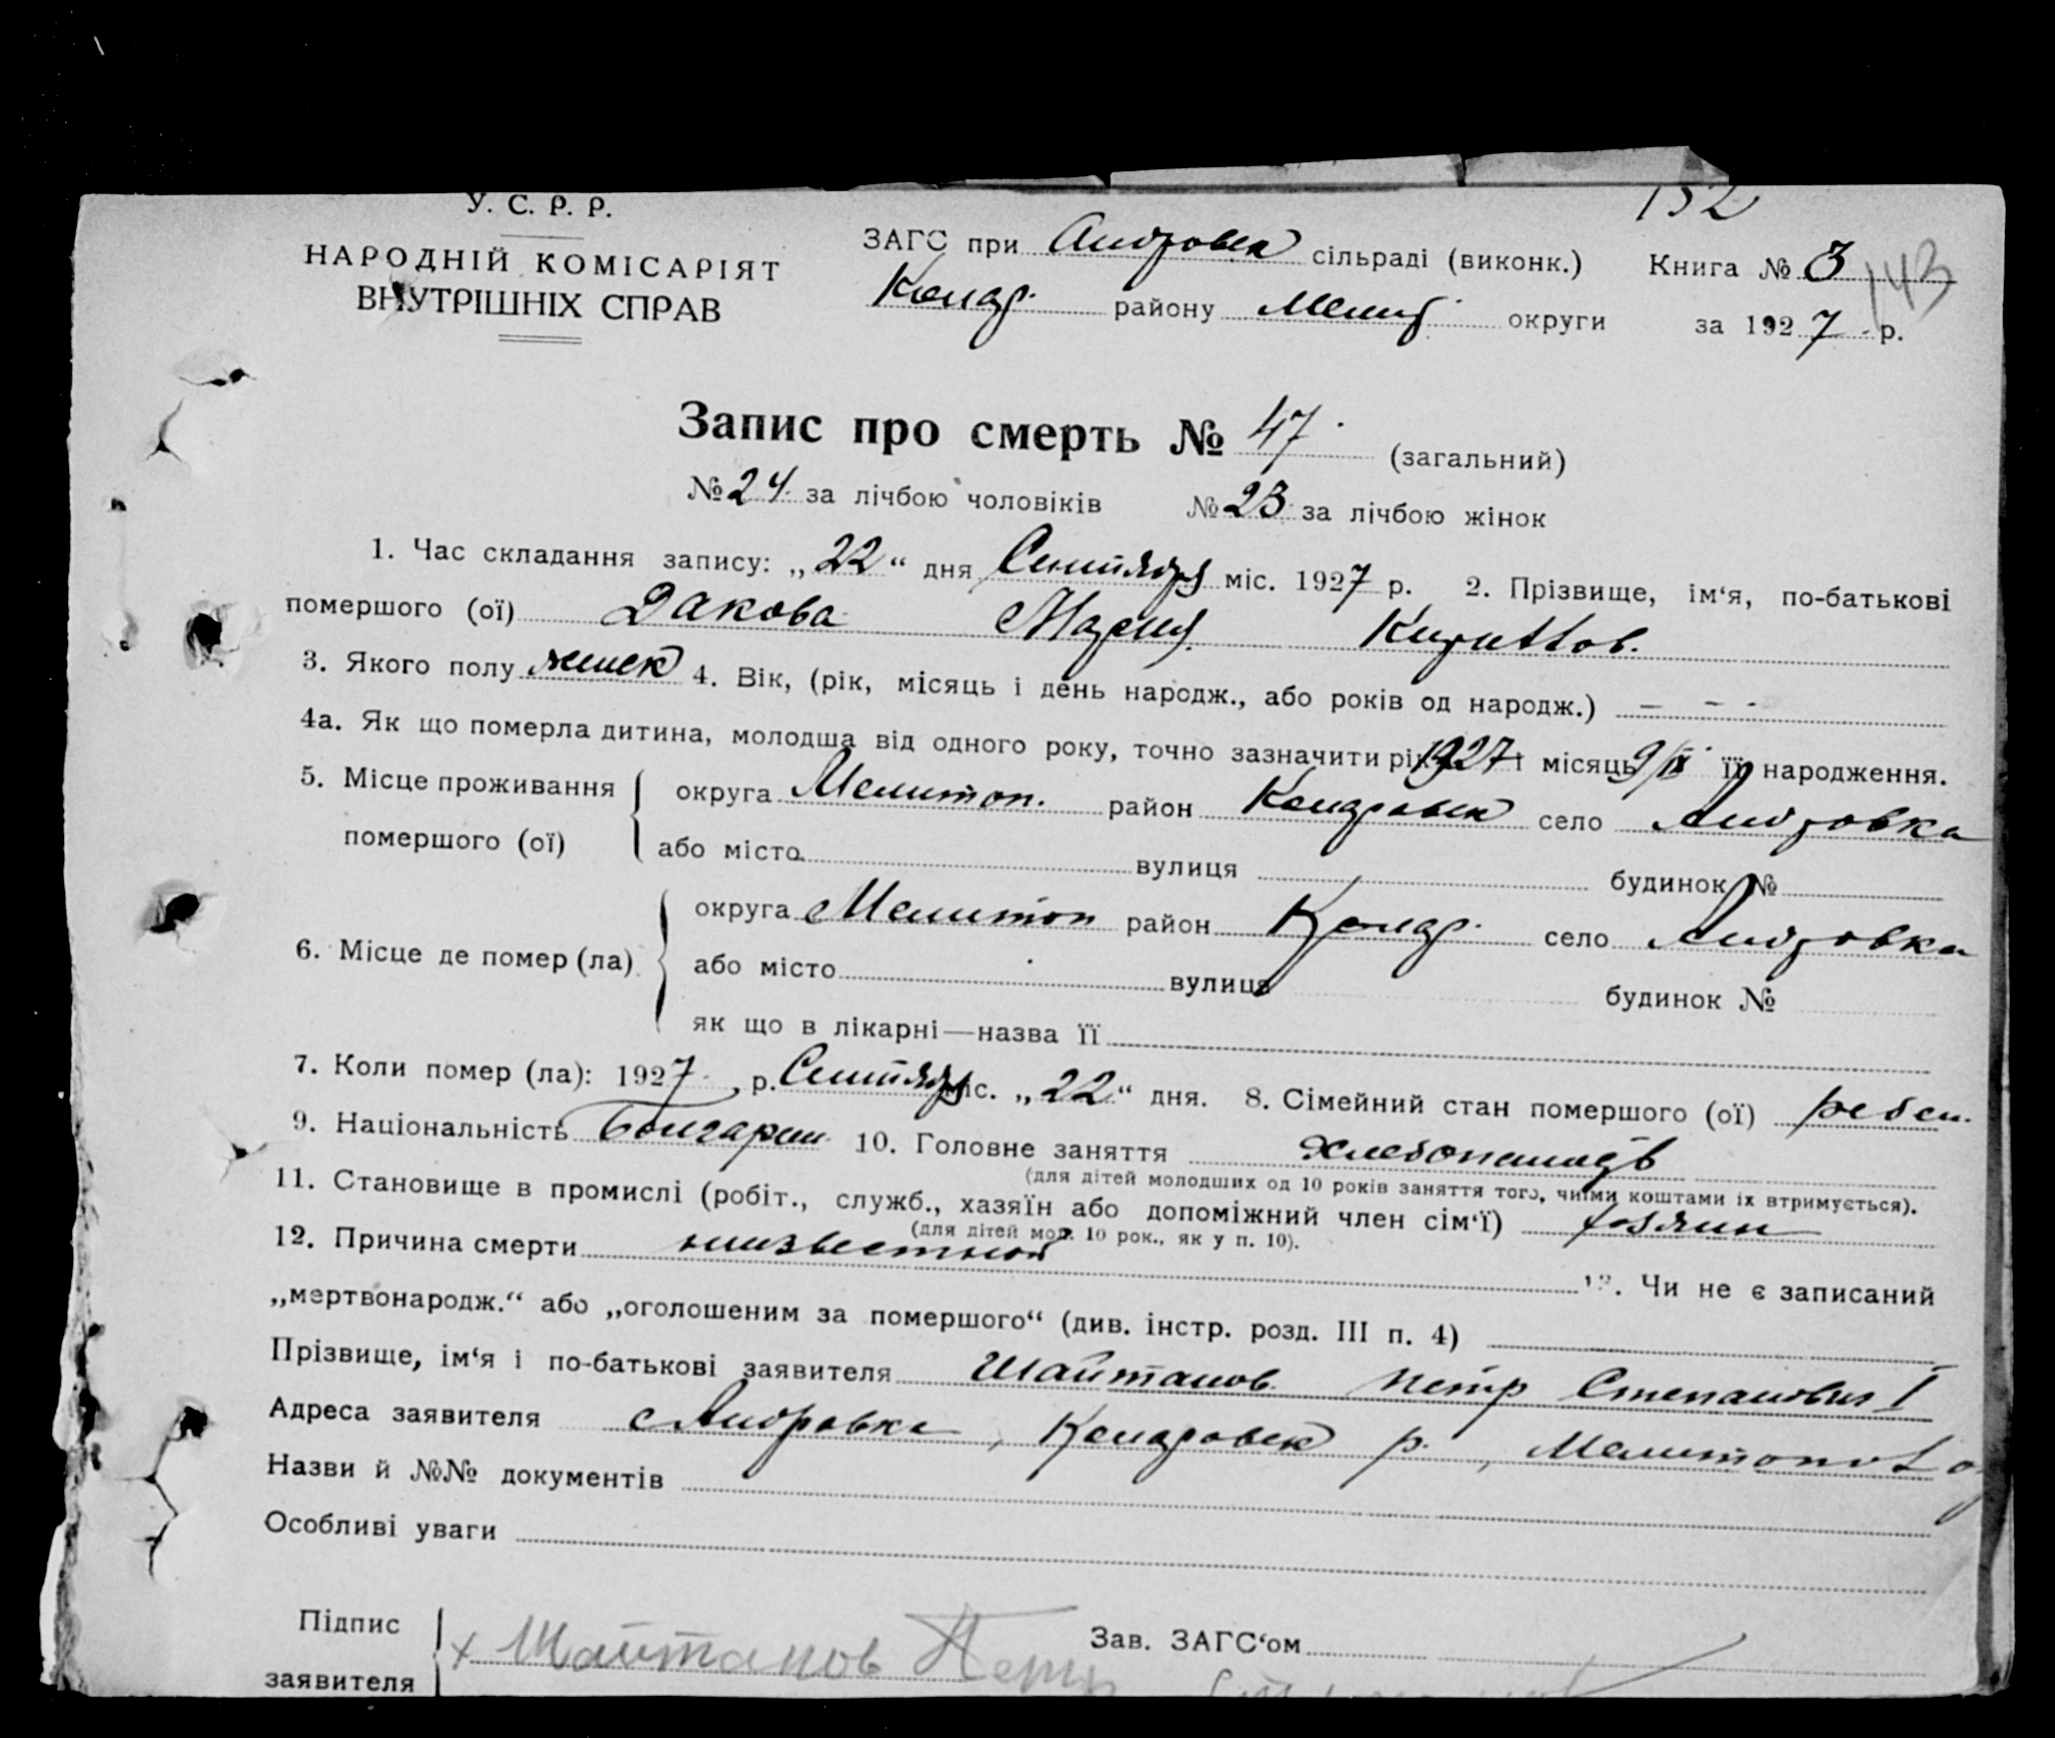 132
У. С. Р. Р.
НАРОДНІЙ КОМІСАРІЯТ
ВНУТРІШНІХ СПРАВ
ЗАГС при Андровск сільраді (виконк.) Книга № 3 143
району Мелит. округи за 1927 р.
Запис про смерть № 47. (загальний)
№ 24. за лічбою чоловіків № 23. за лічбою жінок
1. Час складання запису: „22“ дня Сентября міс. 1927 р. 2. Прізвище, ім‘я, по-батькові
помершого (ої) Дакова Мария
3. Якого полу женск 4. Вік, (рік, місяць і день народж., або років од народж.) – – -
4а. Як що померла дитина, молодша від одного року, точно зазначити рік 1927 і місяць 9/IX її народження.
5. Місце проживання помершого (ої) округа Мелитоп. район село Андровка
або місто вулиця будинок №
6. Місце де помер (ла) округа Мелитоп район село Андровка
або місто вулиця будинок №
як що в лікарні—назва її
7. Коли помер (ла): 1927 р. Сентября міс. „22“ дня. 8. Сімейний стан помершого (ої) ребен.
9. Національність Болгарин 10. Головне заняття хлебопашец
(для дітей молодших од 10 років заняття того, чиїми коштами їх втримується).
11. Становище в промислі (робіт., служб., хазяїн або допоміжний член сім‘ї) хозяин
(для дітей мол. 10 рок., як у п. 10).
12. Причина смерти неизвестной
13. Чи не є записаний
„мертвонародж.“ або „оголошеним за помершого“ (див. інстр. розд. III п. 4)
Прізвище, ім‘я і по-батькові заявителя Шайтанов Петр Степанович I
Адреса заявителя с Андровка, р., Мелитопол о
Назви й №№ документів
Особливі уваги
Підпис заявителя х Шайтанов Петр
Зав. ЗАГС‘ом